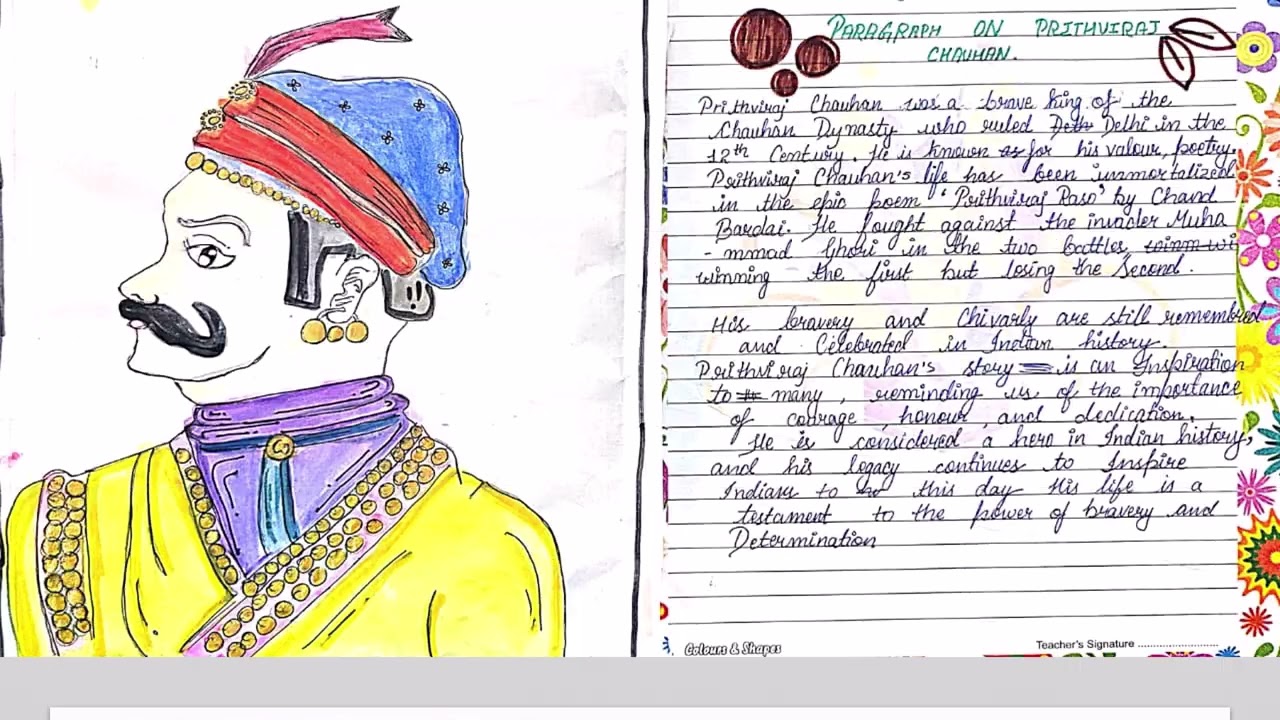 PARAGRAPH ON PRITHVIRAJ
CHAUHAN.
Prithviraj Chauhan was a brave king of the
Chauhan Dynasty who ruled Delhi in the
12th Century. He is known for his valour, poetry.
Prithviraj Chauhan's life has been immortalized
in the epic poem 'Prithviraj Raso' by Chand
Bardai. He fought against the invader Muha
- mmad Ghori in the two battles,
winning the first but losing the Second.
His bravery and Chivarly are still remembred
and Celebrated in Indian history.
Prithviraj Chauhan's story is an Inspiration
to many, reminding us of the importance
of courage, honour, and dedication.
He is considered a hero in Indian history,
and his legacy continues to Inspire
Indians to this day His life is a
testament to the power of bravery and
Determination
Colours & Shapes
Teacher's Signature ........................